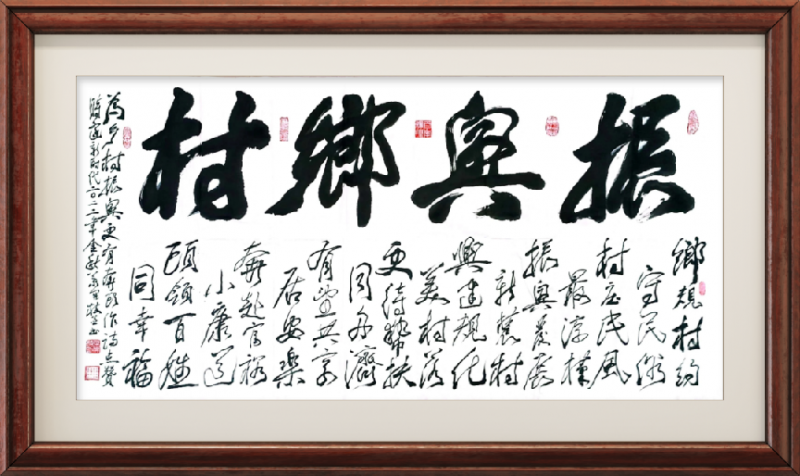 振興鄉村
鄉規村約
守民俗
村庄民風
最淳樸
振興發展
新農村
興建規化
美村落
更待幫扶
同舟濟
有望共享
居安樂
奔赴富裕
小康道
領百姓
同幸福
為乡村振興更有奔頭作詩点贊
新时代二〇二二年